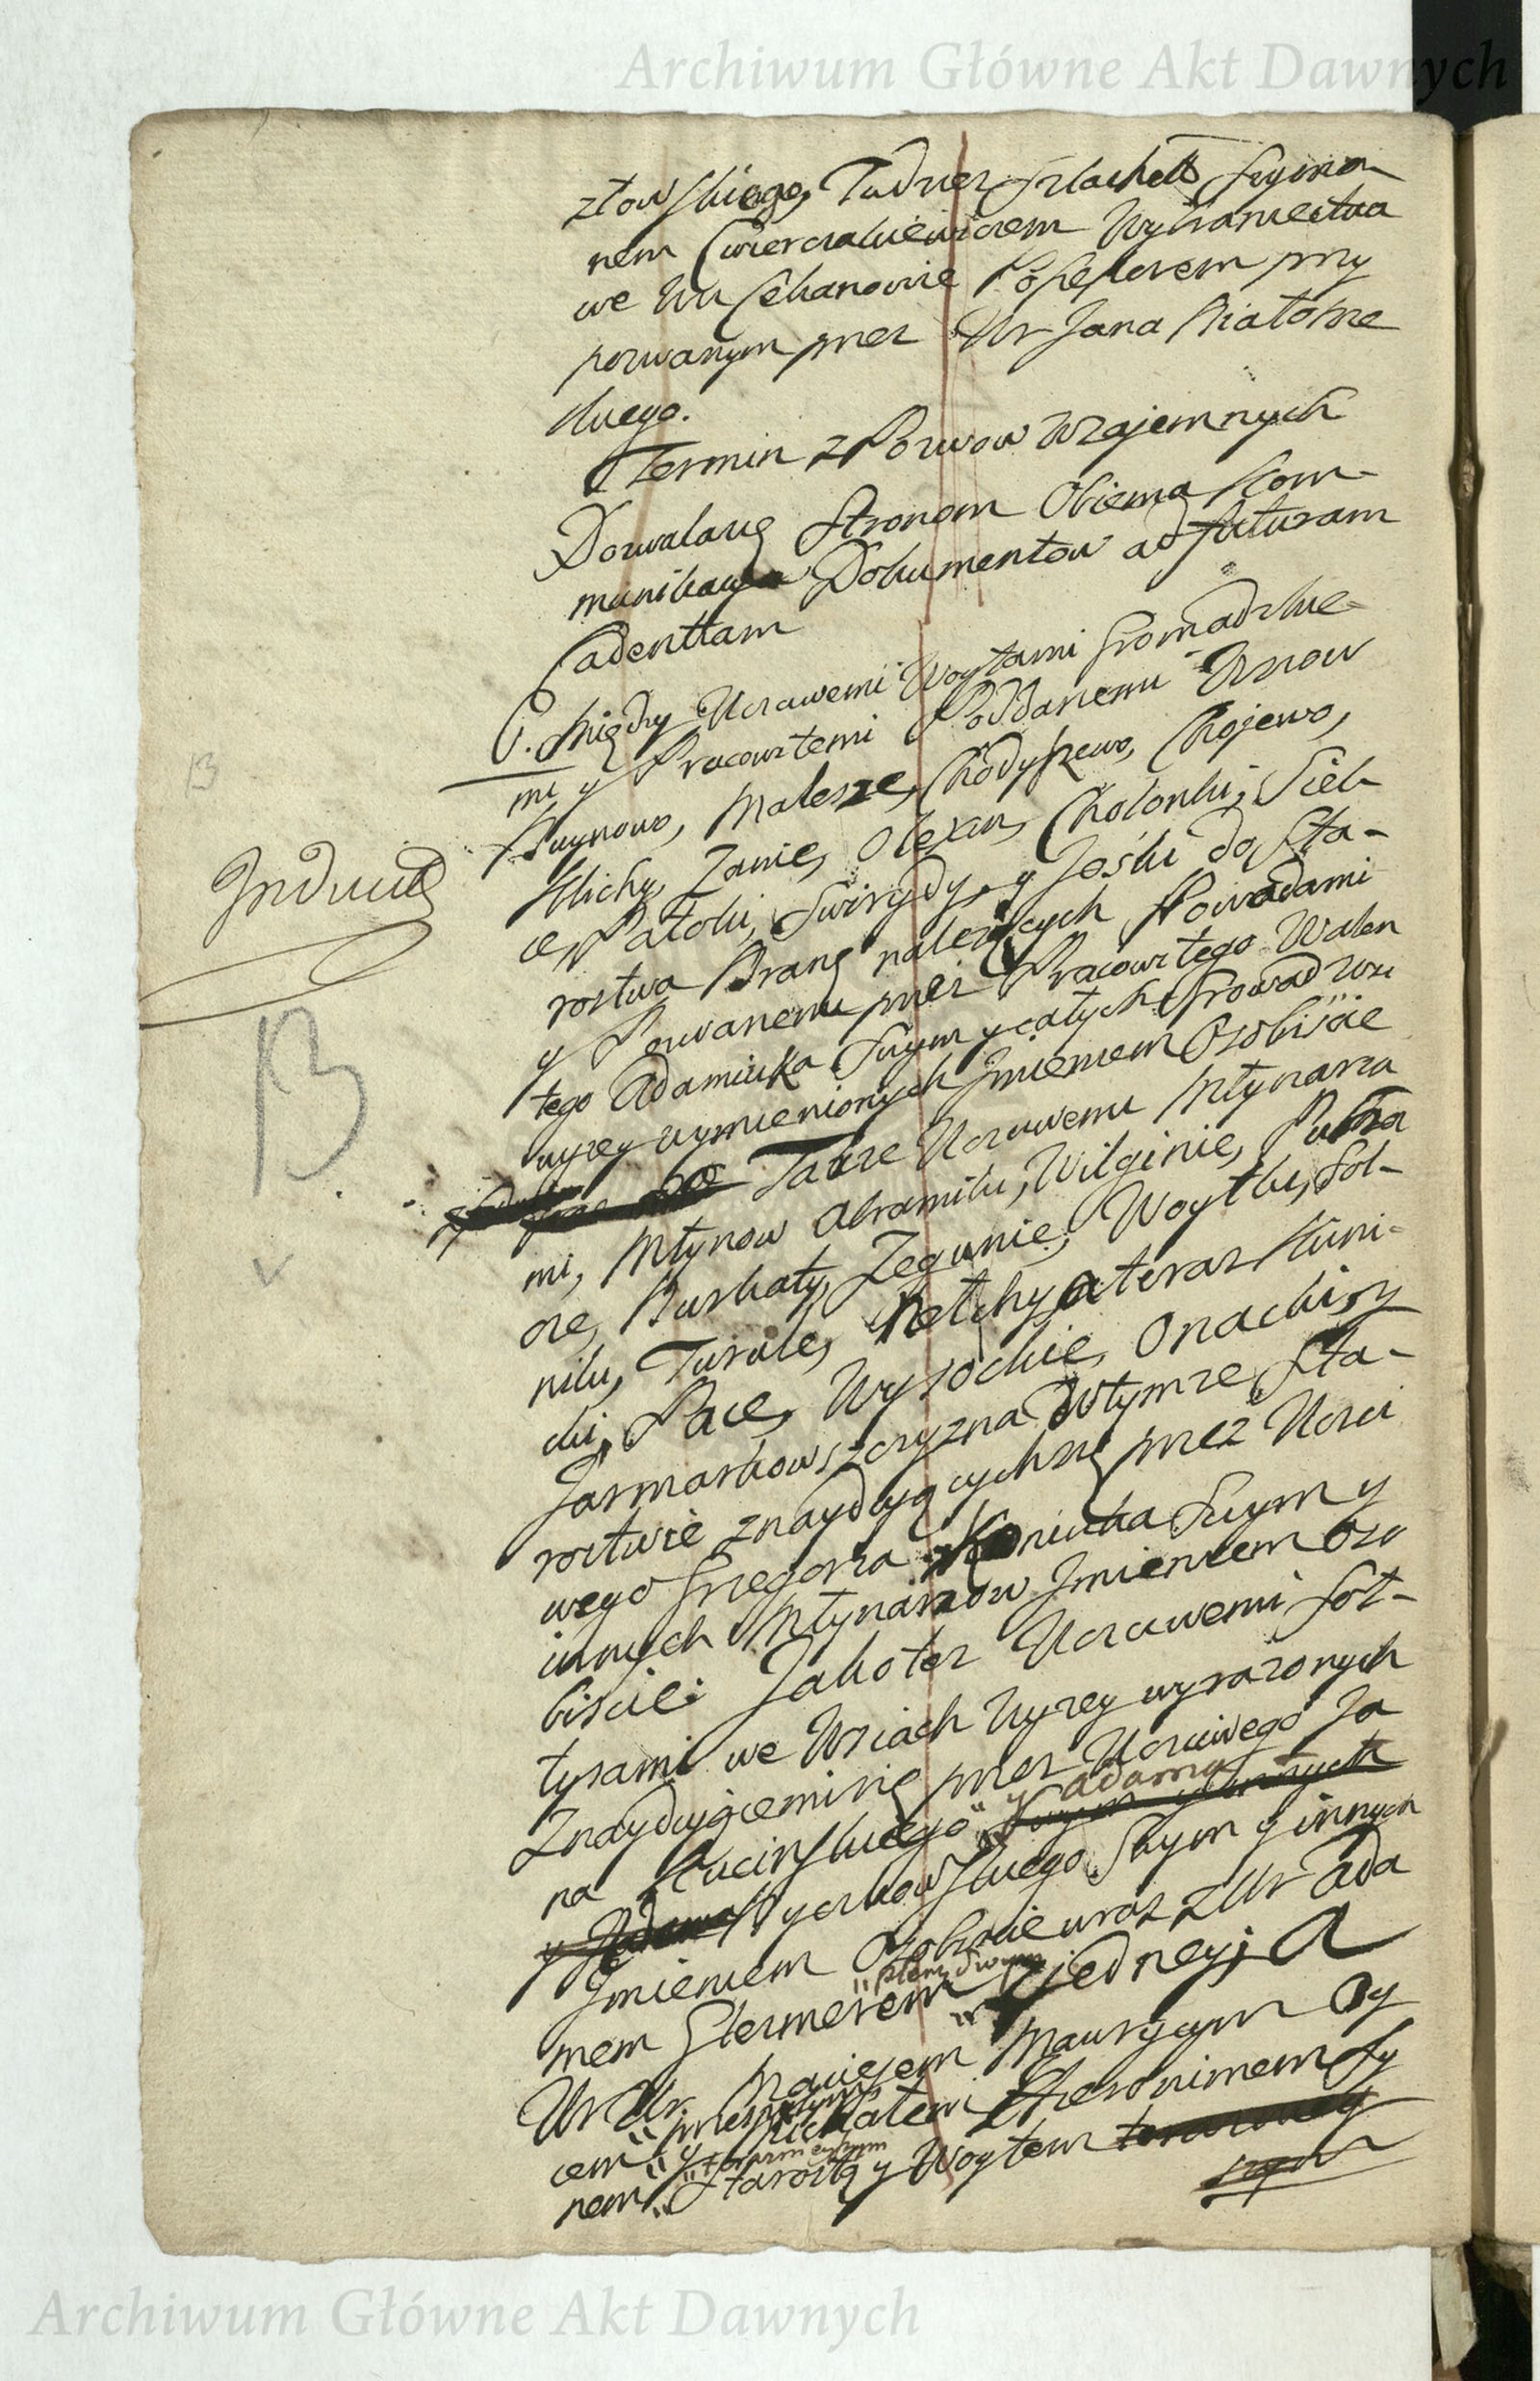 Archiwum Główne Akt Dawnych
złowskiego, Tudziesz Szlachet Szymo
nem Cwierciakiewiczem Wybraniectwa
we Wsi Possessorem przy
pozwanym przez Ur Jana Białobrze
skiego.
Termin z Pozwow Wzajemnych
Dozwalaię Stronom Obiema Kom-
munikacya Dokumentow ad futuram
Cadentiam
C. Między Uczciwemi Woytami Gromadzkie-
mi y Pracowitemi Poddanemi Wsiow
Malesze, Chodyszewo, Chojewo,
Klichy, Zanie, Olexin, Chołonki, Sieś-
ce, Patoki, Swirydy, y Jośki do Sta-
rostwa Brańs należących Powodami
y Pozwanemi przez Pracowitego Walen
tego Adamiuka Swym y całych Gromad Wsi
wyzey wymienionych Jmieniem Osobiscie
Także Uczciwemi Młynarza
mi, Młynow Abramiki, Wilginie, Putra
cze, Buskaty, Zegunie, Woytki, Soł-
niki, Turule, Retchy a teraz Kuni-
cki, Pace, Wysockie, Onacki, y
Jarmarkowszczyzna w tymze Sta-
rostwie znayduiących się przez Uczci
wego Grzegorza Koniuka Swym y
innych Młynarzow Jmieniem Oso
biscie: Jakotez Uczciwemi Soł-
tysami we Wsiach Wyzey wyrazonych
Znayduiącemi się przez Uczciwego Ja
na Kucinskiego y Adama
Wyczkowskiego Swym y innych
Jmieniem Osobiscie wraz z Ur Ada
mem Stermerem z jedney; A
Ur Ur. Maciejem Maurycym Oy
cem y Hieronimem Sy
nem Starostą y Woytem
13
Jnducitę
13
Archiwum Główne Akt Dawnych